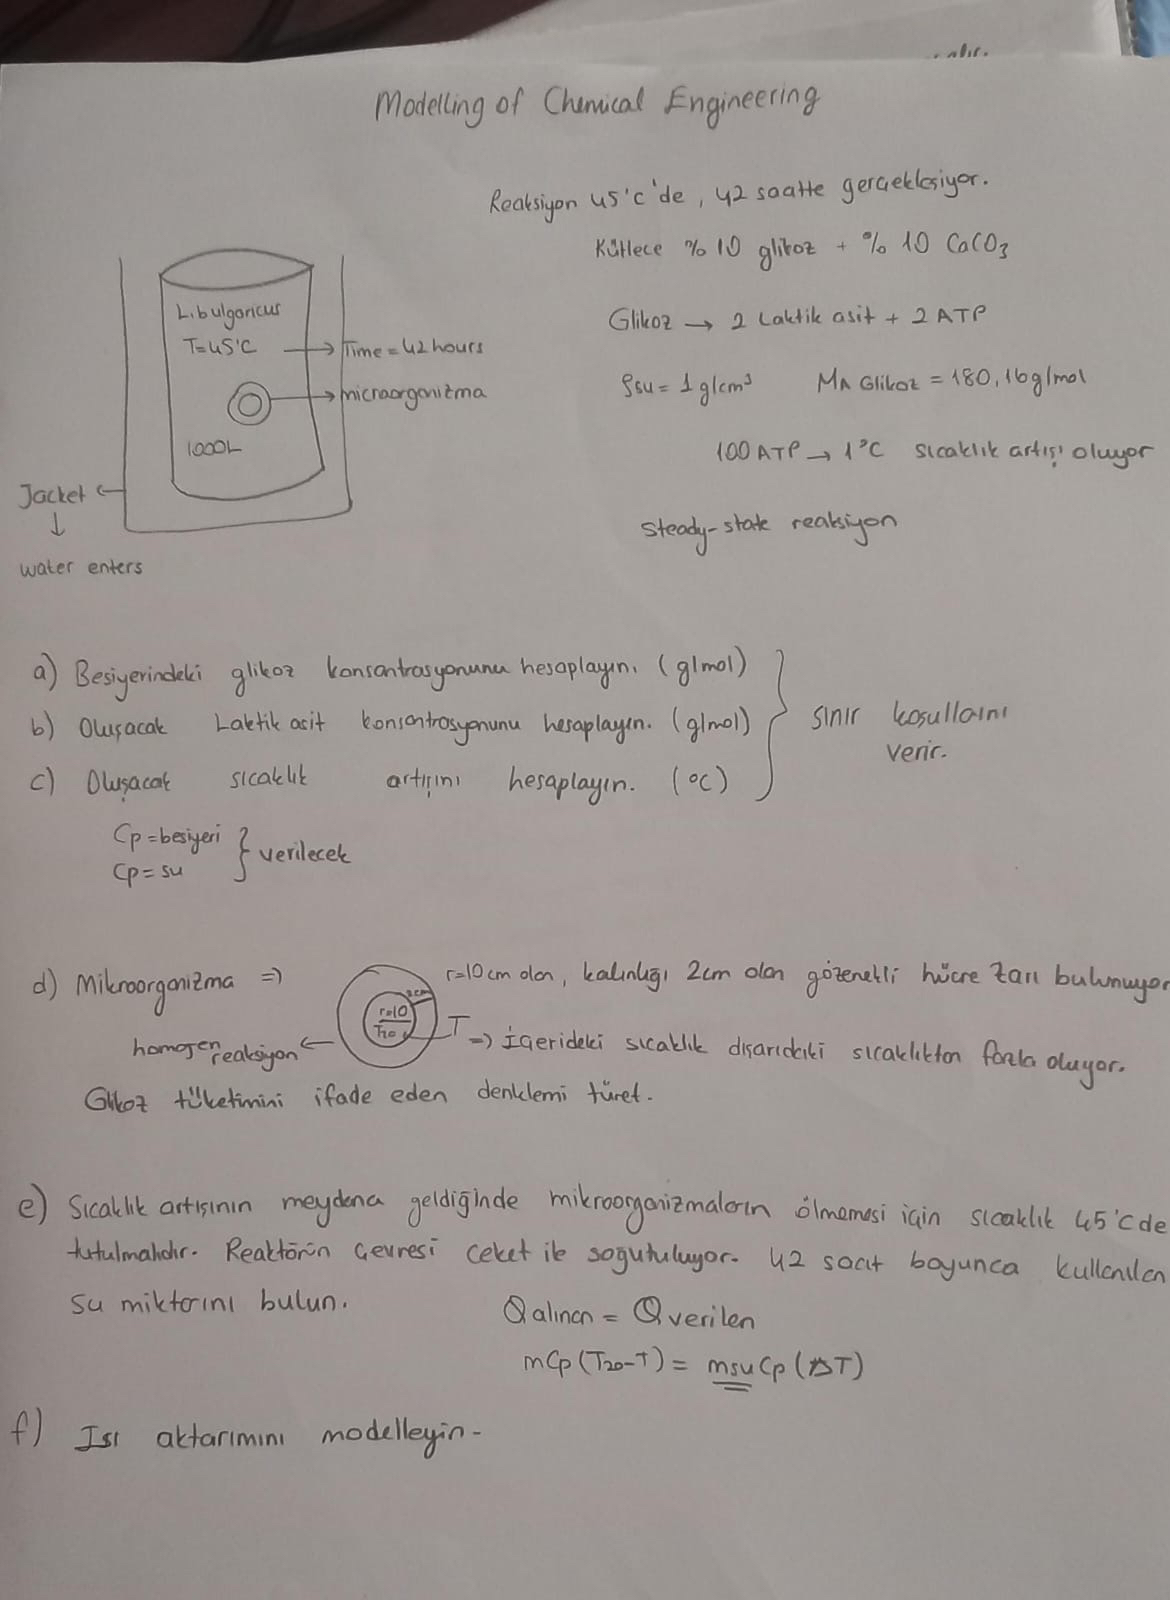 alır.
Modelling of Chemical Engineering
Reaksiyon 45°C'de, 42 saatte gerçekleşiyor.
Kütlece % 10 glikoz + % 10 CaCO3
Glikoz → 2 Laktik asit + 2 ATP
ρsu = 1 g/cm³ MA Glikoz = 180,16 g/mol
100 ATP → 1°C sıcaklık artışı oluyor
Steady-state reaksiyon
L.bulgaricus
T=45°C → Time = 42 hours
→ microorganizma
1000L
Jacket ←
↓
water enters
a) Besiyerindeki glikoz konsantrasyonunu hesaplayın. (g/mol)
b) Oluşacak Laktik asit konsantrasyonunu hesaplayın. (g/mol)
c) Oluşacak sıcaklık artışını hesaplayın. (°C)
sınır koşullarını
verir.
Cp = besiyeri
Cp = su
verilecek
d) Mikroorganizma => r=10 cm olan, kalınlığı 2cm olan gözenekli hücre zarı bulunuyor
2cm
r=10
T20
T => İçerideki sıcaklık dışarıdaki sıcaklıktan fazla oluyor.
homojen reaksiyon ←
Glikoz tüketimini ifade eden denklemi türet.
e) Sıcaklık artışının meydana geldiğinde mikroorganizmaların ölmemesi için sıcaklık 45°C de
tutulmalıdır. Reaktörün çevresi ceket ile soğutuluyor. 42 saat boyunca kullanılan
su miktarını bulun.
Qalınan = Qverilen
mCp (T20-T) = msu Cp (ΔT)
f) Isı aktarımını modelleyin.